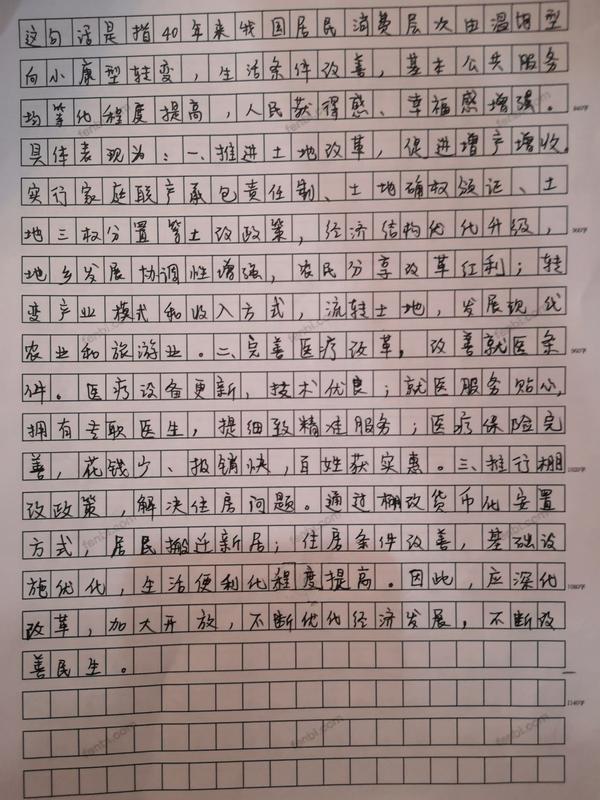 这句话是指40年来我国居民消费层次由温饱型
向小康型转变，生活条件改善，基本公共服务
均等化程度提高，人民获得感、幸福感增强。
具体表现为：一、推进土地改革，促进增产增收。
实行家庭联产承包责任制、土地确权颁证、土
地三权分置等土改政策，经济结构优化升级，
地乡发展协调性增强，农民分享改革红利；转
变产业模式和收入方式，流转土地，发展现代
农业和旅游业。二、完善医疗改革，改善就医条
件。医疗设备更新、技术优良；就医服务贴心，
拥有专职医生，提细致精准服务；医疗保险完
善，花钱少、报销快，百姓获实惠。三、推行棚
改政策，解决住房问题。通过棚改货币化安置
方式，居民搬迁新居；住居条件改善，基础设
施优化，生活便利化程度提高。因此，应深化
改革，加大开放，不断优化经济发展，不断改
善民生。
840字
900字
960字
1020字
1080字
1140字
fenbi.com
fenbi.com
fenbi.com
fenbi.com
fenbi.com
fenbi.com